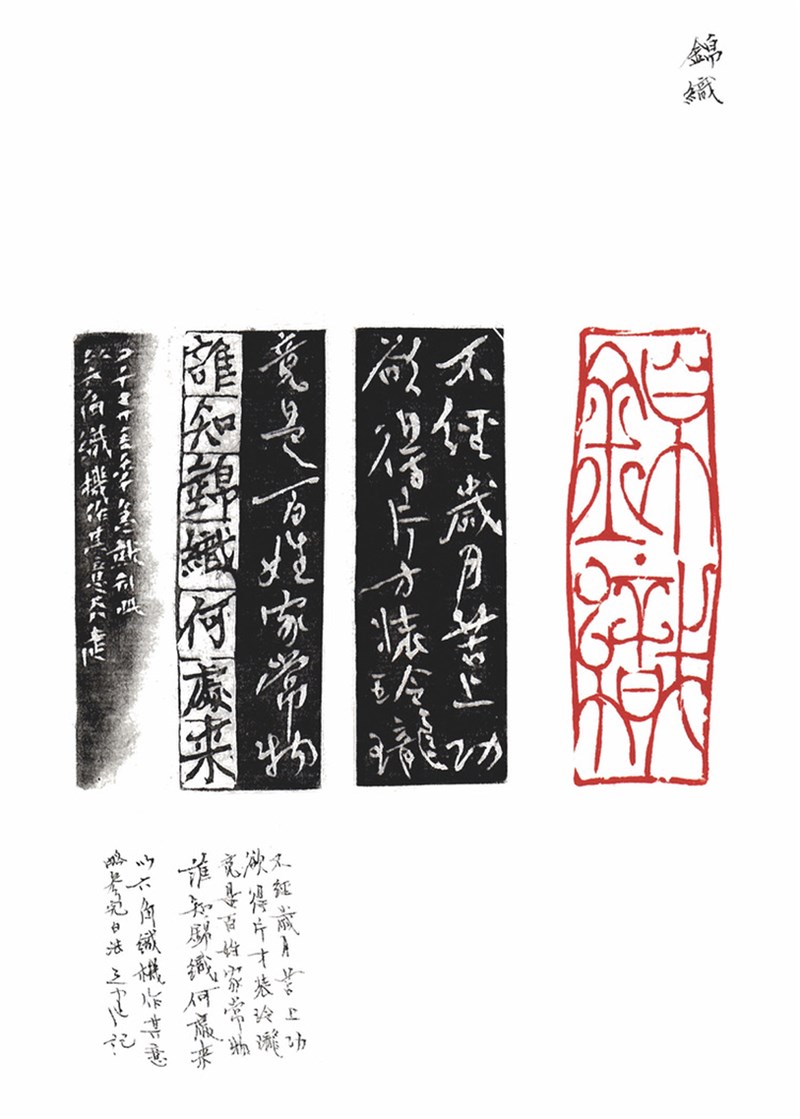 錦
織
錦織
不經歲月苦上功
欲得片方裝玲瓏
竟是百姓家常物
誰知錦織何處来
以六角織機作其意
不經歲月苦上功
欲得片才裝玲瓏
竟是百姓家常物
誰知錦織何處来
以六角織機作其意
略參究白法
記